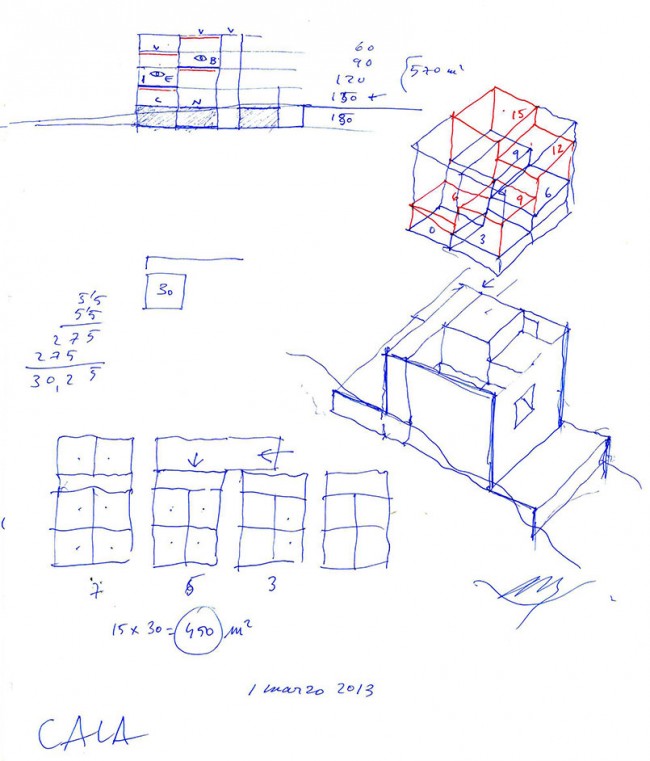 V V V
B
E
C N
60
90
120
150 +
180
570 m²
15
9 12
6 9 6
0 3
30
5'5
5 5
2 7 5
2 7 5
30,25
7 5 3
15 x 30 = 450 m²
1 marzo 2013
CALA